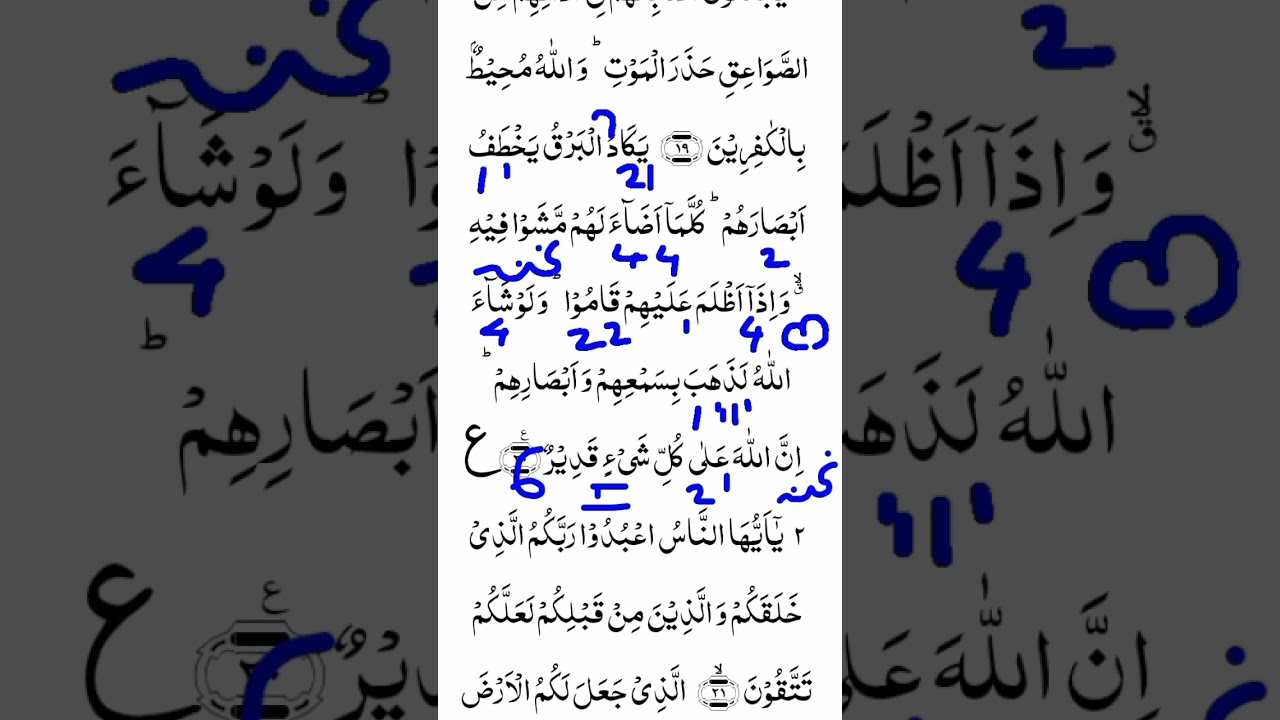 الصَّوَاعِقِ حَذَرَ الْمَوْتِ ؕ وَ اللّٰهُ مُحِيْطٌۢ
بِالْكٰفِرِيْنَ ۱۹ يَكَادُ الْبَرْقُ يَخْطَفُ
1 ' 21
اَبْصَارَهُمْ ؕ كُلَّمَاۤ اَضَآءَ لَهُمْ مَّشَوْا فِيْهِ
غنہ 4 4 2
ۙۗ وَ اِذَاۤ اَظْلَمَ عَلَيْهِمْ قَامُوْا ؕ وَ لَوْ شَآءَ
4 2 2 ' 4
اللّٰهُ لَذَهَبَ بِسَمْعِهِمْ وَ اَبْصَارِهِمْ ؕ
1 ' 1 '
اِنَّ اللّٰهَ عَلٰى كُلِّ شَيْءٍ قَدِيْرٌ ع
6 2 ' غنہ
۲ يٰۤاَيُّهَا النَّاسُ اعْبُدُوْا رَبَّكُمُ الَّذِيْ
خَلَقَكُمْ وَ الَّذِيْنَ مِنْ قَبْلِكُمْ لَعَلَّكُمْ
تَتَّقُوْنَ ۙ ۲۱ الَّذِيْ جَعَلَ لَكُمُ الْاَرْضَ